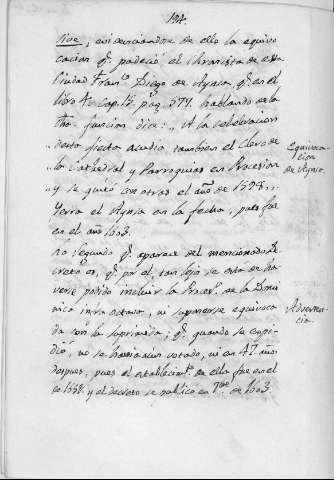 194.
sive, evidenciandose de ello la equivo
cacion q.e padeció el Chronista de esta
Ciudad Fran.co Diego de Aynsa, q.e en el
libro 4. cap. pag. 577. hablando de la
dha funcion dice: A la celebracion
desta fiesta acudia tambien el Clero de
la Cathedral y Parroquias en Procesion
y se quitó con otras el año de 1598.
Yerra el Aynsa en la fecha, pues fue
en el año 1603.
Lo segundo q.e aparece del mencionado De
creto es, q.e por el tan lejos se esta de ha
verse podido incluir la Proces.n de la Domi
nica infraoctava, ni suponerse equivoca
da con la suprimida; q.e quando se expi
dió, no se havia aun votado, ni en 47 años
despues, pues el establecim.to de ella fue en el
de 1650. y el decreto se publicó en 7bre de 1603.
Equivoca-
cion
de Aynsa.
Adverten-
cia.